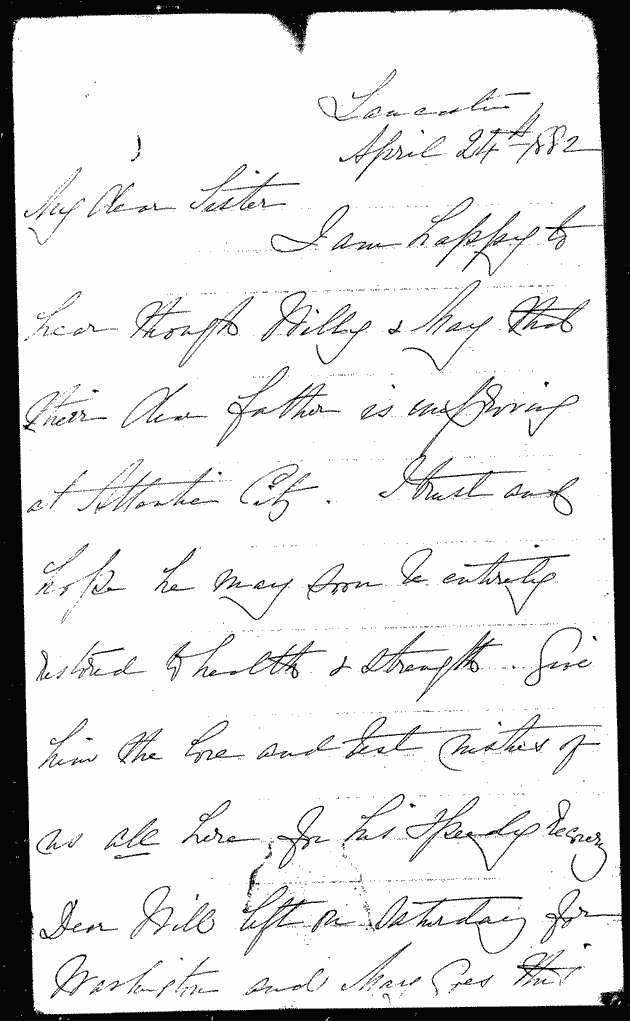 Lancaster,
April 24th 1882
My dear Sister
I am happy to
hear through Willy & May that
their dear father is improving
at Atlantic City. I trust and
hope he may soon be entirely
restored to health & strength. Give
him the love and best wishes of
us all here for his speedy recovery
Dear Will left on Saturday for
Washington and Mary goes this